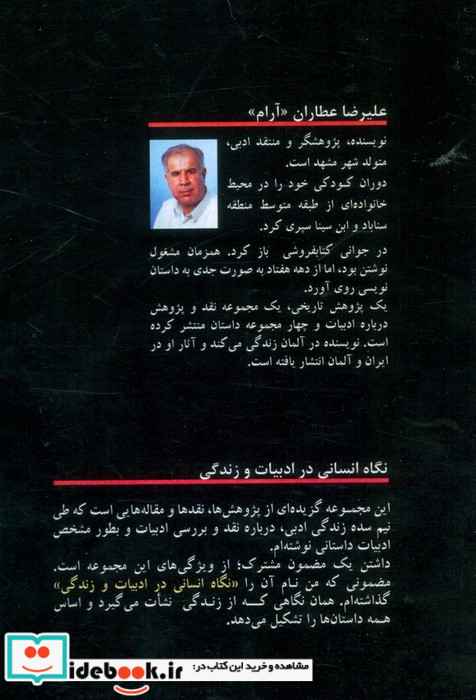 علیرضا عطاران «آرام»
نویسنده، پژوهشگر و منتقد ادبی،
متولد شهر مشهد است.
دوران کودکی خود را در محیط
خانواده‌ای از طبقه متوسط منطقه
سناباد و ابن سینا سپری کرد.
در جوانی کتابفروشی باز کرد. همزمان مشغول
نوشتن بود، اما از دهه هفتاد به صورت جدی به داستان
نویسی روی آورد.
یک پژوهش تاریخی، یک مجموعه نقد و پژوهش
درباره ادبیات و چهار مجموعه داستان منتشر کرده
است. نویسنده در آلمان زندگی می‌کند و آثار او در
ایران و آلمان انتشار یافته است.
نگاه انسانی در ادبیات و زندگی
این مجموعه گزیده‌ای از پژوهش‌ها، نقدها و مقاله‌هایی است که طی
نیم سده زندگی ادبی، درباره نقد و بررسی ادبیات و بطور مشخص
ادبیات داستانی نوشته‌ام.
داشتن یک مضمون مشترک؛ از ویژگی‌های این مجموعه است.
مضمونی که من نام آن را «نگاه انسانی در ادبیات و زندگی»
گذاشته‌ام. همان نگاهی که از زندگی نشأت می‌گیرد و اساس
همه داستان‌ها را تشکیل می‌دهد.
مشاهده و خرید این کتاب در:
idebook.ir